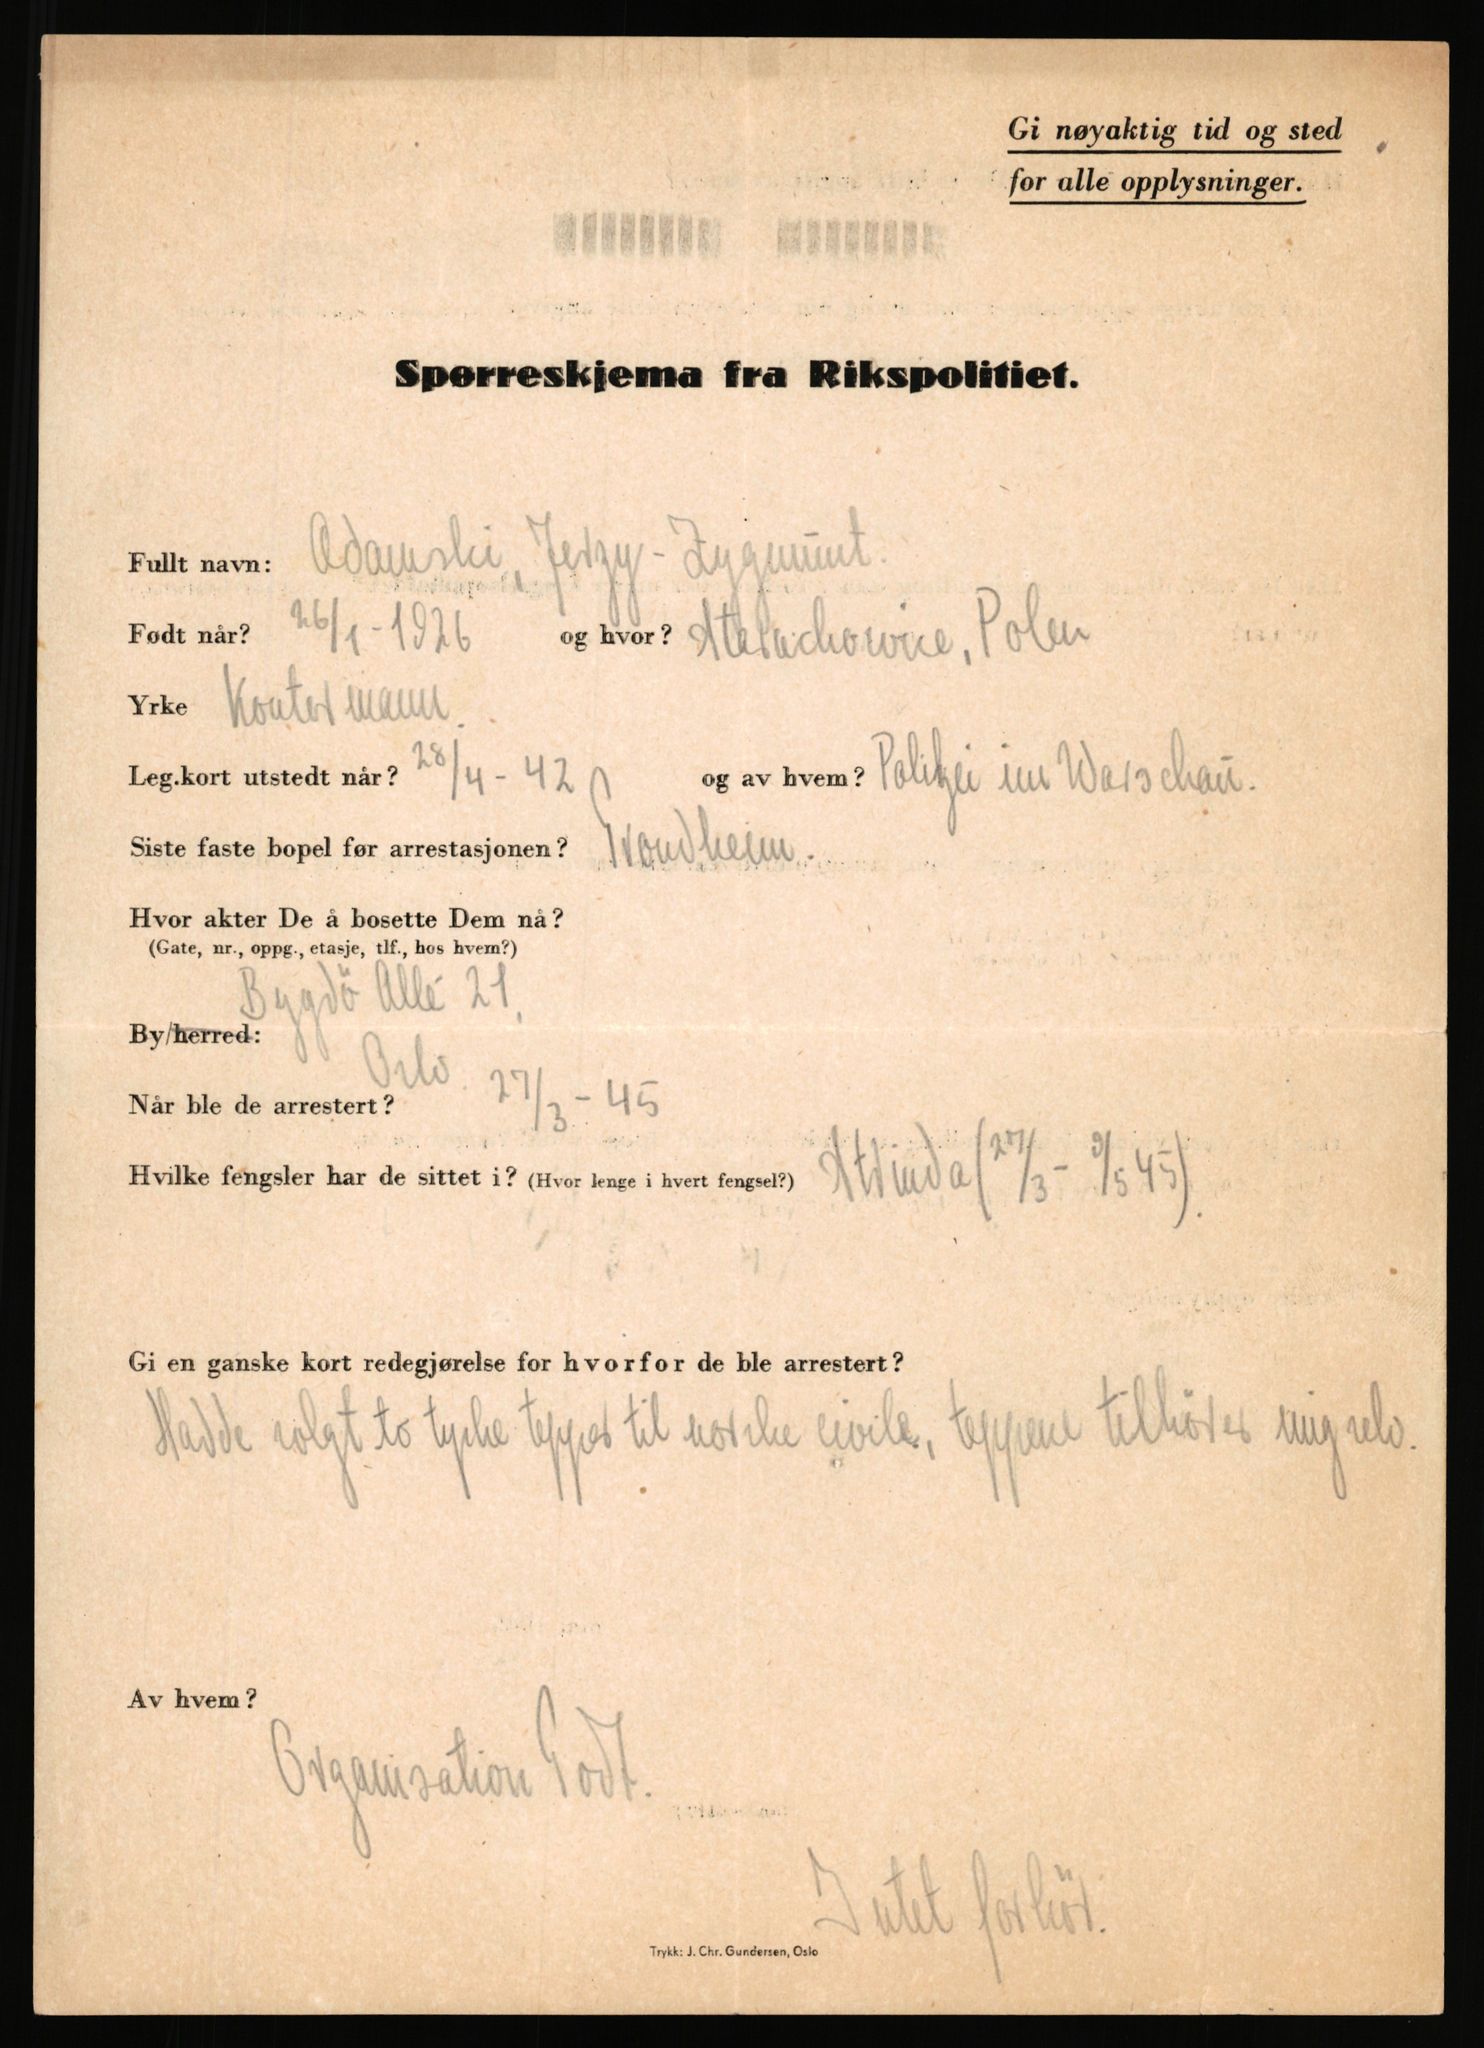 Gi nøyaktig tid og sted
for alle opplysninger.
Spørreskjema fra Rikspolitiet.
Fullt navn: Adamski, Jerzy-Zygmunt.
Født når? 26/1-1926 og hvor? Starachowice, Polen
Yrke Kontormann.
Leg.kort utstedt når? 28/4-42 og av hvem? Polizei im Warschau.
Siste faste bopel før arrestasjonen? Trondheim.
Hvor akter De å bosette Dem nå?
(Gate, nr., oppg., etasje, tlf., hos hvem?)
Bygdö Allé 21,
By/herred:
Oslo.
Når ble de arrestert? 27/3-45
Hvilke fengsler har de sittet i? (Hvor lenge i hvert fengsel?) Strinda (27/3 - 9/5 45).
Gi en ganske kort redegjørelse for hvorfor de ble arrestert?
Hadde solgt to tyske tepper til norske civile, teppene tilhörer mig selv.
Av hvem?
Organisation Todt.
Intet forhör.
Trykk: J. Chr. Gundersen, Oslo